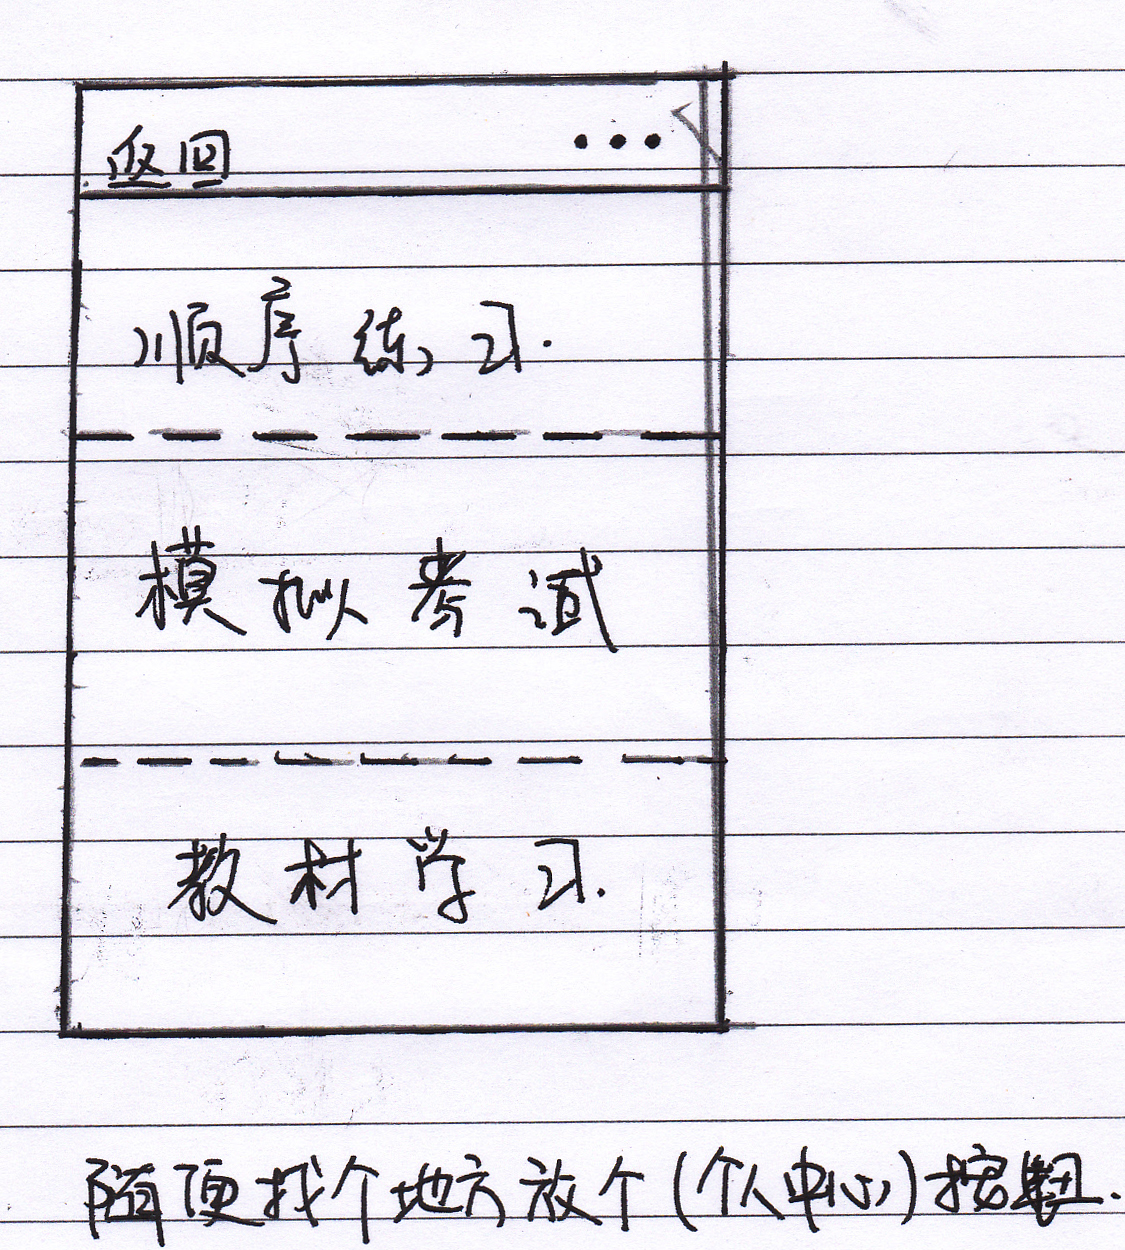 返回 •••
顺序练习.
模拟考试
教材学习.
随便找个地方放个(个人中心)按鈕.